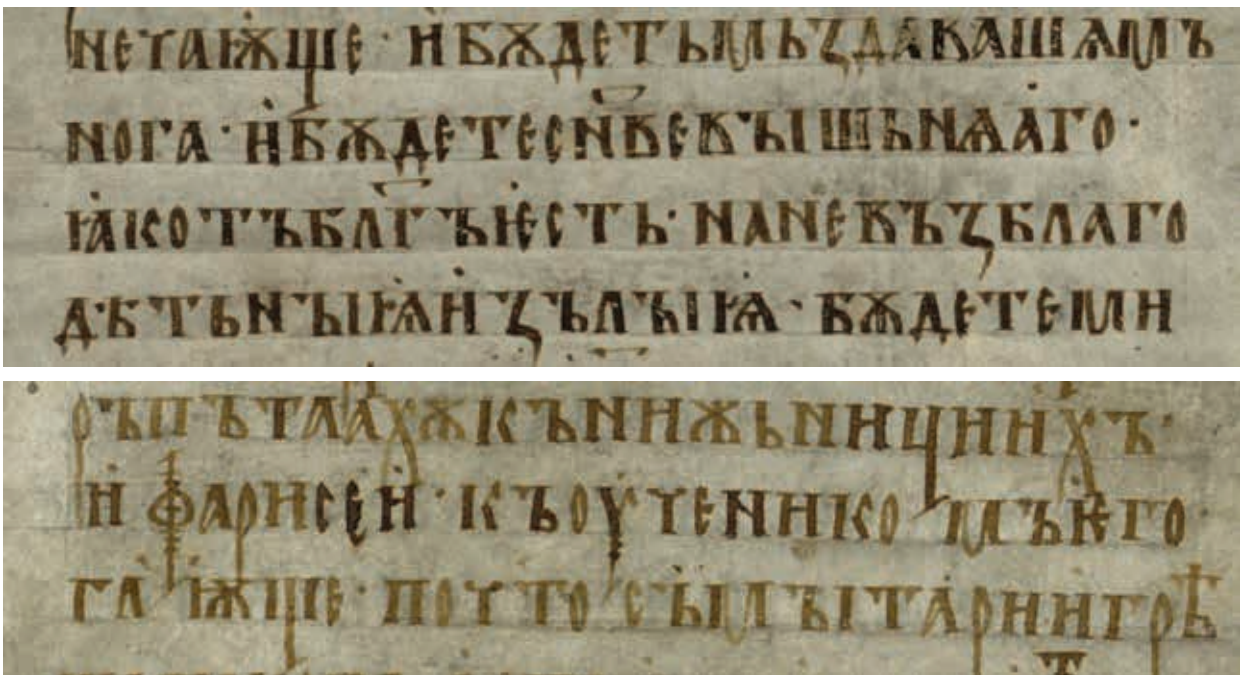 нечаѭще · и бѫдетъ мьзда вашѧ мъ
нога · и бѫдете сн҃ве вꙑшьнѧаго ·
ꙗко тъ бл҃гъ ѥсть · на невъзблаго
дѣтьнꙑѩ и зълꙑѩ · бѫдете ми
ръпътлахѫ кънижьници ихъ ·
и фарисеи · къ оученикомъ ѥго
гл҃ѭще · почто съ мꙑтари и грѣ